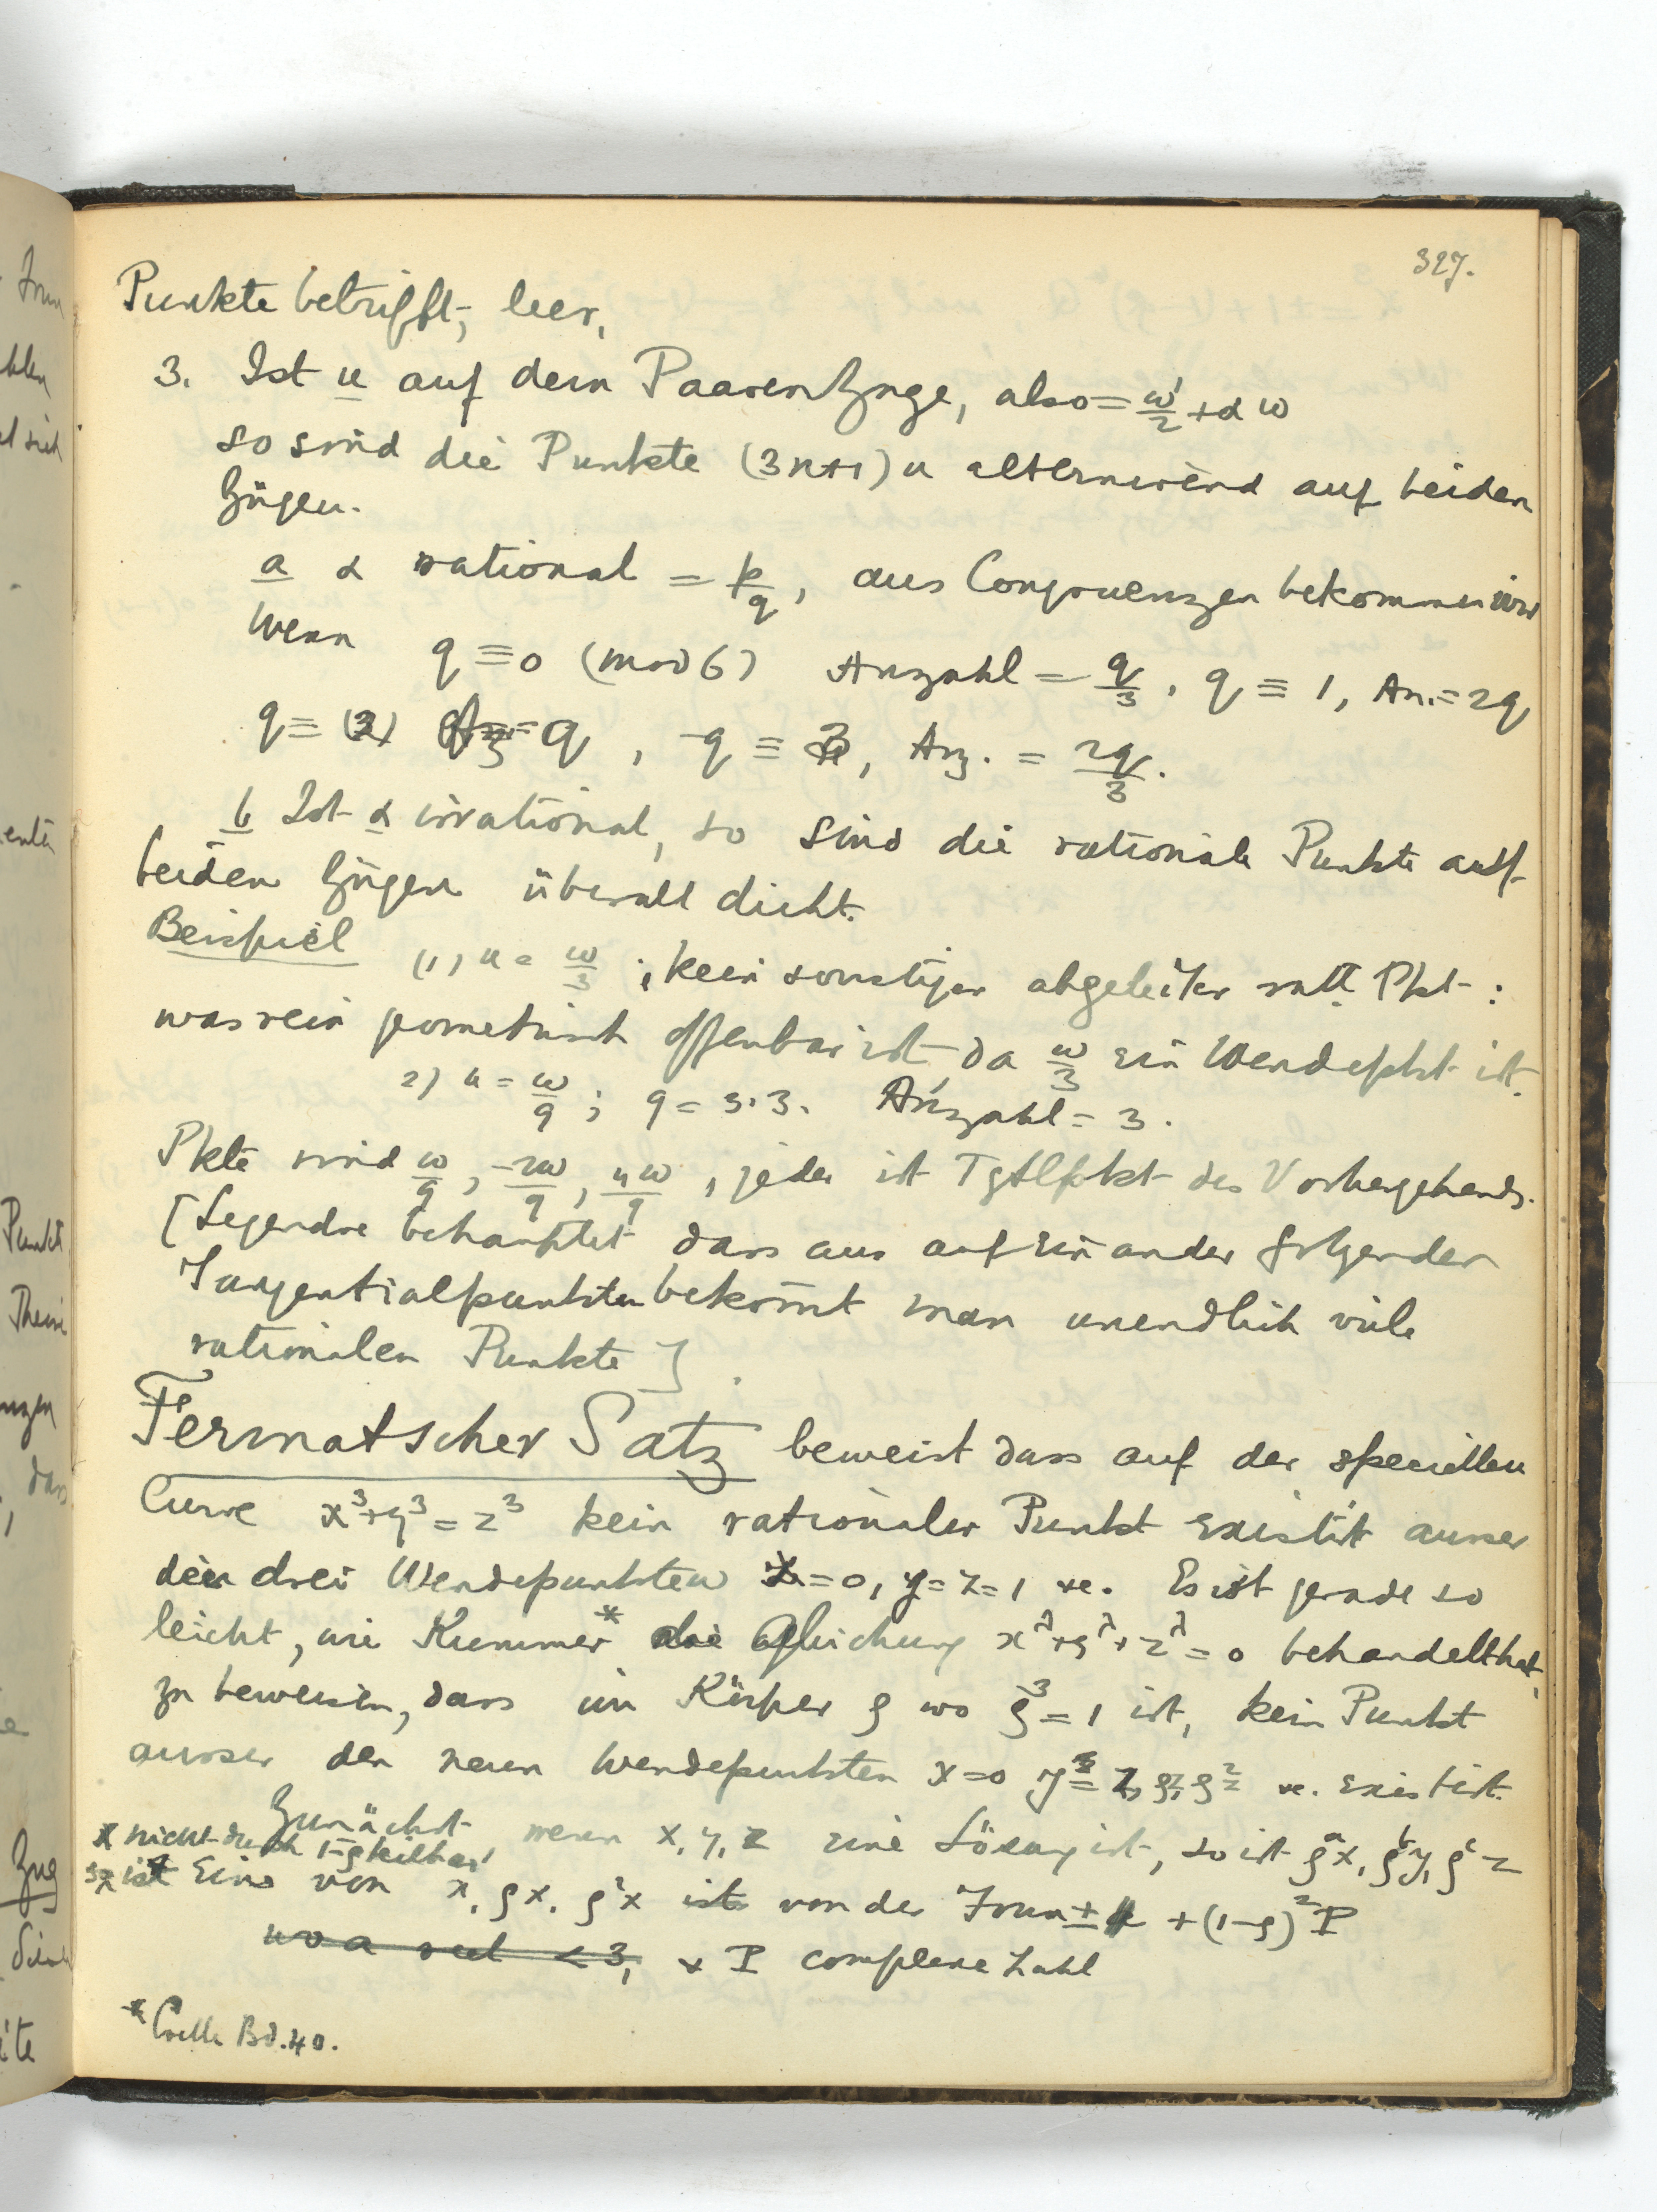 327.
Punkte betrifft, leer,
3. Ist u auf dem Paaren Zuge, also = ω'/2 + α ω
so sind die Punkte (3n+1) u alternirend auf beiden
Zügen.
a α rational = p/q, aus Congruenzen bekommen wir
wenn q ≡ 0 (mod 6) Anzahl = q/3, q ≡ 1, An. = 2q
q ≡ (2) q, q ≡ 3, Anz. = 2q/3.
b Ist α irrational, so sind die rationale Punkte auf
beiden Zügen überall dicht.
Beispiel (1) u = ω/3; kein sonstiger abgeleiter ratl. Pkt:
was rein geometrisch offenbar ist da ω/3 ein Wendepkt ist.
2) u = ω/9; 9 = 3.3. Anzahl = 3.
Pkte sind ω/9, -2ω/9, 4ω/9, jeder ist Tgtlpkt des Vorhergehends.
[Legendre behauptet dass aus auf einander folgenden
Tangentialpunkten bekom̄t man unendlich viele
rationalen Punkte].
Fermatscher Satz beweist dass auf der speciellen
Curve x³+y³=z³ kein rationaler Punkt existirt ausser
den drei Wendepunkten x=0, y=z=1 etc. Es ist gerade so
leicht, wie Kummer* die Gleichung x^λ+y^λ+z^λ=0 behandelt hat,
zu beweisen, dass im Körper ρ wo ρ³=1 ist, kein Punkt
ausser den neun Wendepunkten x=0 y= z, ρz, ρ²z etc. existirt.
Zunächst wenn x, y, z eine Lösung ist, so ist ρ^a x, ρ^b y, ρ^c z
x nicht durch 1-ρ teilbar,
so ist Eins von x, ρx, ρ²x ist von der Form ± 1 + (1-ρ)² P
wo a < 3, & P complexe Zahl
* Crelle Bd. 40.